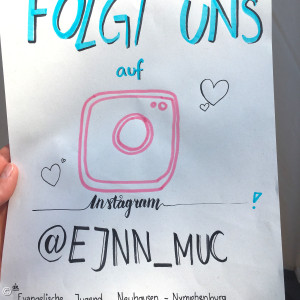 FOLGT UNS
auf
Instagram
!
@EJNN_MUC
Evangelische Jugend Neuhausen - Nymphenburg